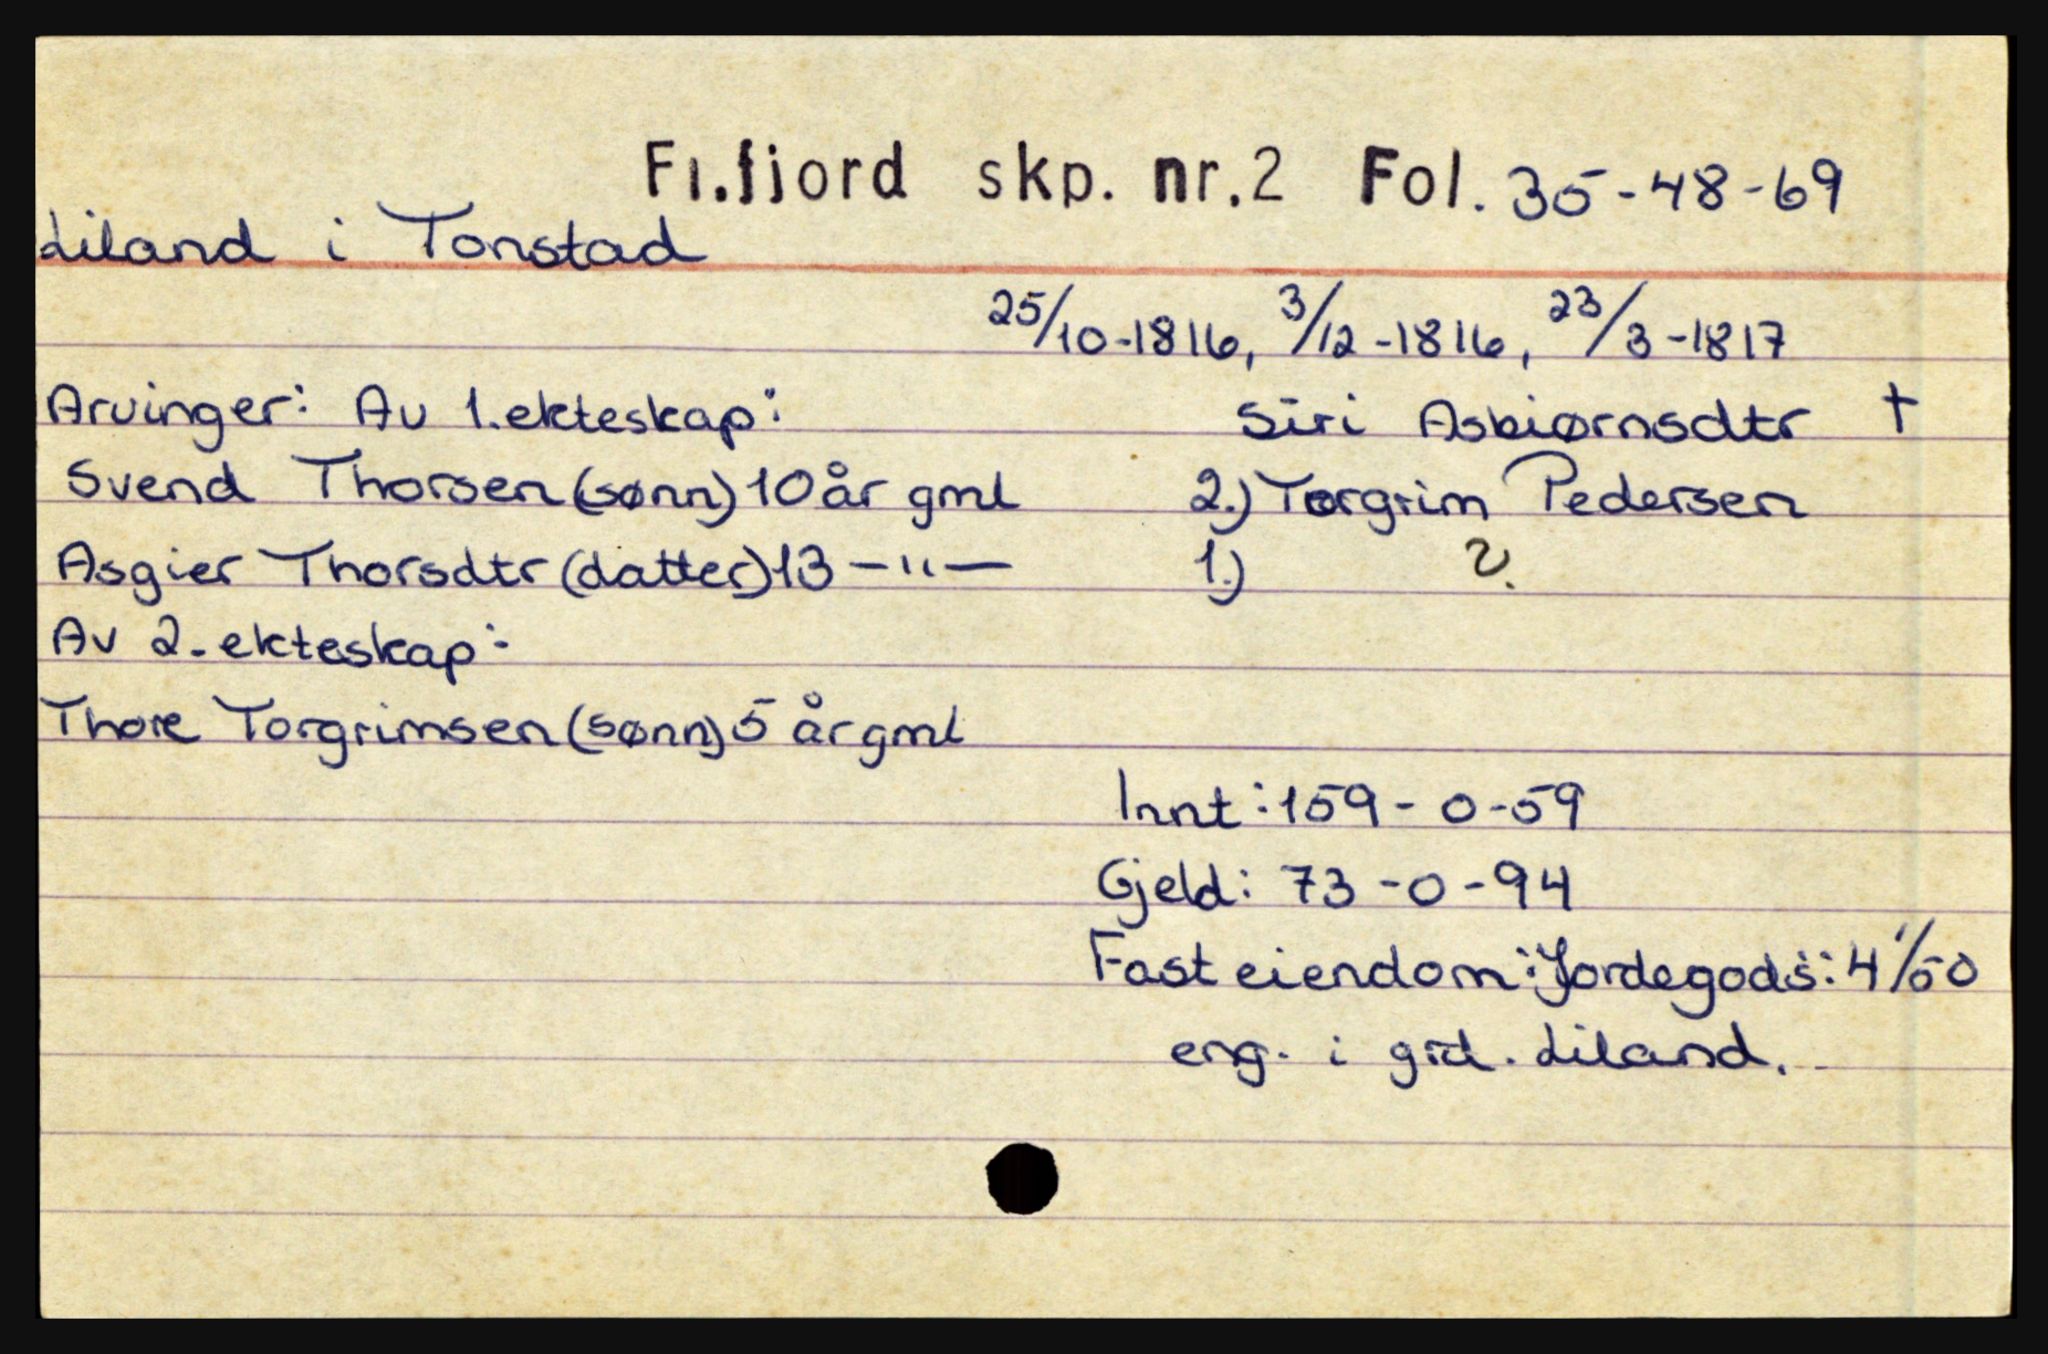 Fl.fjord skp. nr.2 Fol. 35-48-69
Liland i Tonstad
25/10-1816, 3/12-1816, 23/3-1817
Arvinger: Av 1.ekteskap: Siri Asbiørnsdtr †
Svend Thorsen (sønn) 10 år gml 2.) Torgrim Pedersen
Asgier Thorsdtr (datter) 13 —"— 1.) ?
Av 2. ekteskap:
Thore Torgrimsen (sønn) 5 år gml
Innt: 159-0-59
Gjeld: 73-0-94
Fast eiendom: Jordegods: 4 1/50
eng. i grd. Liland.